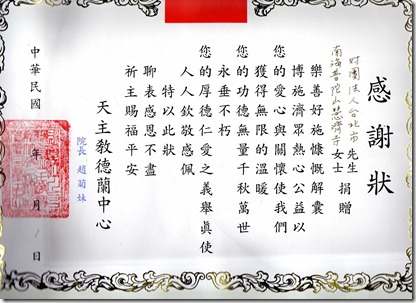 感謝狀
財團法人台北市
南海普陀山慈濟寺
先生
女士
捐贈
樂善好施慷慨解囊
博施濟眾熱心公益以
您的愛心與關懷使我們
獲得無限的溫暖
您的功德無量千秋萬世
永垂不朽
您的厚德仁愛之義舉真使
人人欽敬感佩
特以此狀
聊表感恩不盡
祈主賜福平安
天主教德蘭中心
院長 趙菊妹
中華民國 年 月 日